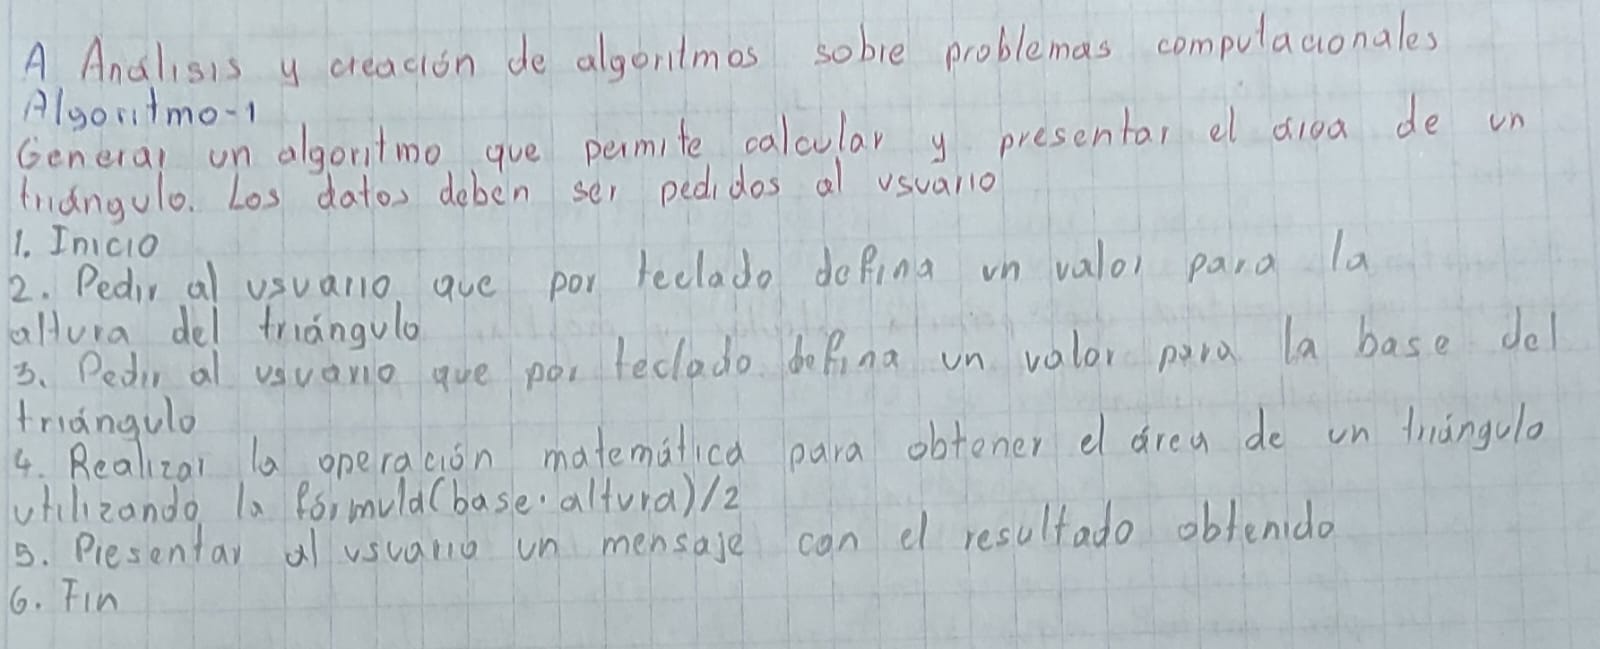 A Análisis y creación de algoritmos sobre problemas computacionales
Algoritmo-1
Generar un algoritmo que permite calcular y presentar el área de un
triángulo. Los datos deben ser pedidos al usuario
1. Inicio
2. Pedir al usuario que por teclado defina un valor para la
altura del triángulo
3. Pedir al usuario que por teclado defina un valor para la base del
triángulo
4. Realizar la operación matemática para obtener el área de un triángulo
utilizando la fórmula(base·altura)/2
5. Presentar al usuario un mensaje con el resultado obtenido
6. Fin